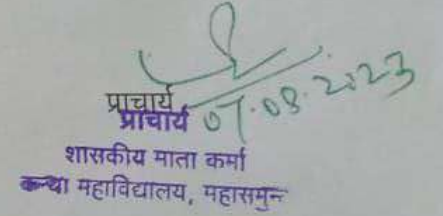 प्राचार्य
प्राचार्य 07.08.2023
शासकीय माता कर्मा
कन्या महाविद्यालय, महासमुन्द